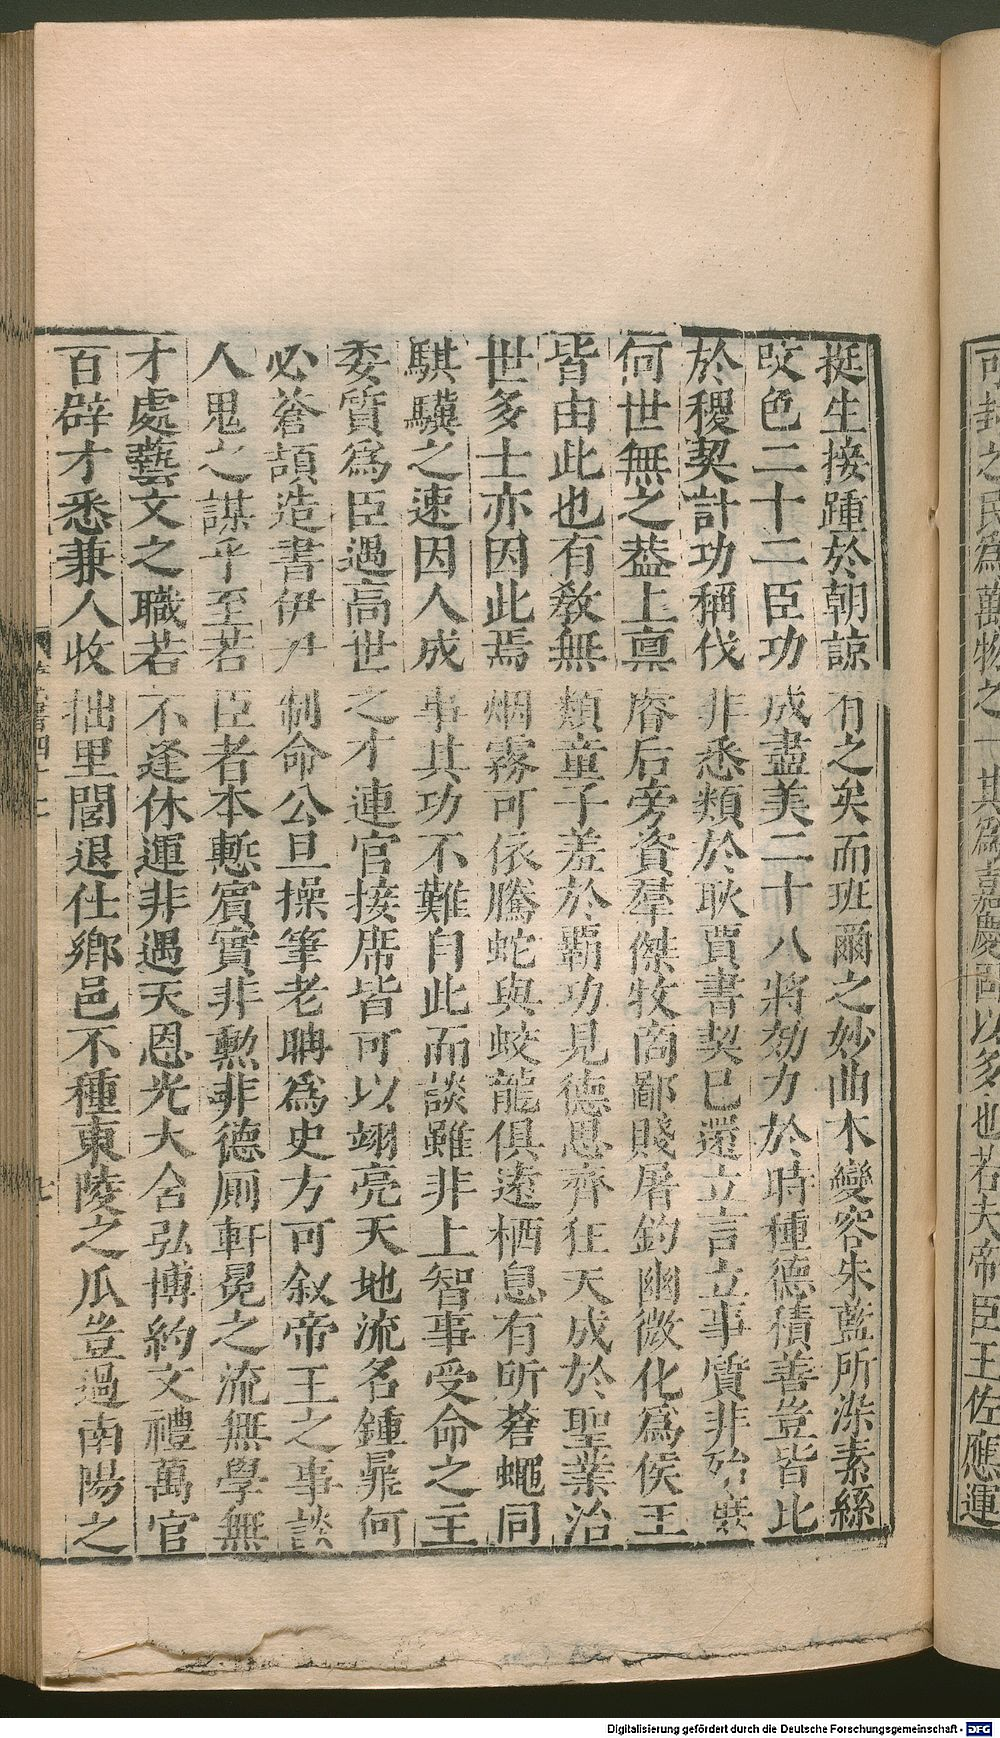 可封之民爲萬物之一斯爲嘉慶固以多也若夫帝臣王佐應運
挺生接踵於朝諒有之矣而班爾之妙曲木變容朱藍所染素絲
改色二十二臣功成盡美二十八將効力於時種德積善豈皆比
於稷契計功稱伐非悉類於耿賈書契已還立言立事質非殆庶
何世無之葢上稟睿后旁資羣傑牧商鄙賤屠釣幽微化爲侯王
皆由此也有教無類童子羞於霸功見德思齊狂夫成於聖業治
世多士亦因此焉烟霧可依騰蛇與蛟龍俱遠栖息有所蒼蠅同
騏驥之速因人成事其功不難自此而談雖非上智事受命之主
委質爲臣遇高世之才連官接席皆可以翊亮天地流名鍾鼎何
必蒼頡造書伊尹制命公旦操筆老聃爲史方可叙帝王之事談
人鬼之謀乎至若臣者本慙賓實非勲非德厠軒冕之流無學無
才處藝文之職若不逢休運非遇天恩光大含弘博約文禮萬官
百辟才悉兼人收拙里閭退仕鄉邑不種東陵之瓜豈過南陽之
Digitalisierung gefördert durch die Deutsche Forschungsgemeinschaft - DFG